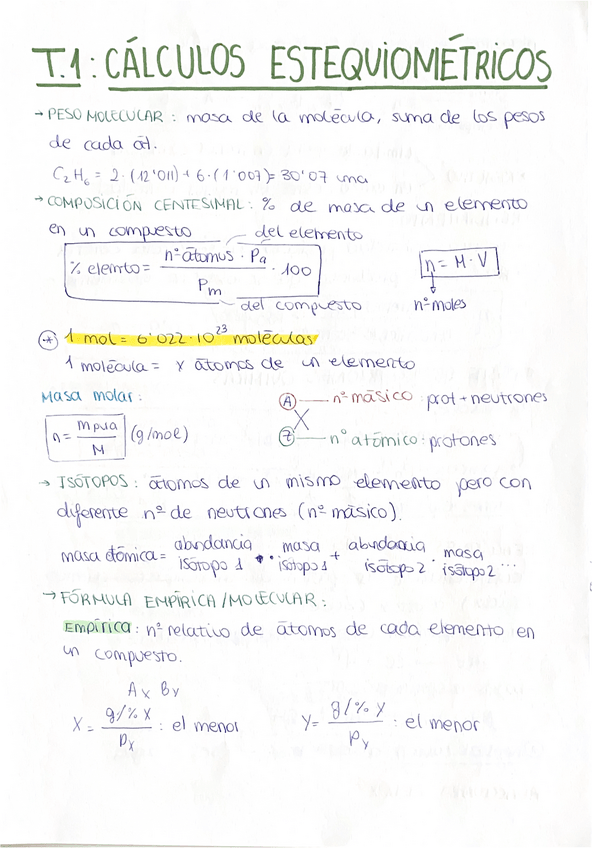 T.1: CÁLCULOS ESTEQUIOMÉTRICOS
→ PESO MOLECULAR: masa de la molécula, suma de los pesos
de cada át.
C₂H₆ = 2·(12'011) + 6·(1'007) = 30'07 uma
→ COMPOSICIÓN CENTESIMAL: % de masa de un elemento
en un compuesto
del elemento
% elemto = nº átomos · Pa / Pm · 100
n = M · V
del compuesto
nº moles
* 1 mol = 6'022·10²³ moléculas
1 molécula = x átomos de un elemento
Masa molar:
n = m pura / M (g/mol)
A — nº másico: prot + neutrones
X
Z — nº atómico: protones
→ ISÓTOPOS: átomos de un mismo elemento pero con
diferente nº de neutrones (nº másico).
masa atómica = abundancia isótopo 1 · masa isótopo 1 + abundancia isótopo 2 · masa isótopo 2 ...
→ FÓRMULA EMPÍRICA/MOLECULAR:
Empírica: nº relativo de átomos de cada elemento en
un compuesto.
Ax By
X = g/% X / Px : el menor
Y = g/% Y / Py : el menor